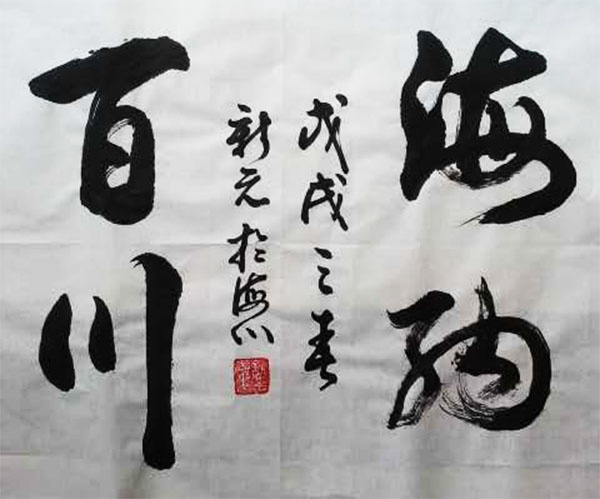 海纳
百川
戊戌之春
新元於海